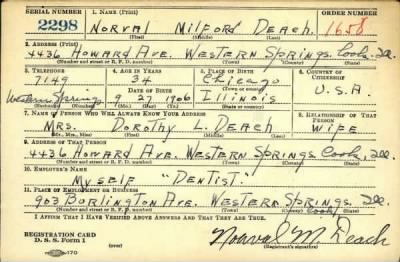 SERIAL NUMBER 1. NAME (Print) ORDER NUMBER
2298 NORVAL MILFORD DEACH 1658
(First) (Middle) (Last)
2. ADDRESS (Print)
4436 HOWARD AVE. WESTERN SPRINGS, Cook, Ill.
(Number and street or R. F. D. number) (Town) (County) (State)
3. TELEPHONE 4. AGE IN YEARS 5. PLACE OF BIRTH 6. COUNTRY OF CITIZENSHIP
7149 34 Chicago
(Town or county)
DATE OF BIRTH U.S.A.
Western Springs 9 27 1906 Illinois
(Exchange) (Number) (Mo.) (Day) (Yr.) (State or country)
7. NAME OF PERSON WHO WILL ALWAYS KNOW YOUR ADDRESS 8. RELATIONSHIP OF THAT PERSON
MRS. DOROTHY L. DEACH WIFE
(Mr., Mrs., Miss) (First) (Middle) (Last)
9. ADDRESS OF THAT PERSON
4436 HOWARD AVE. WESTERN SPRINGS, Cook, Ill.
(Number and street or R. F. D. number) (Town) (County) (State)
10. EMPLOYER'S NAME
MYSELF "DENTIST"
11. PLACE OF EMPLOYMENT OR BUSINESS
903 BURLINGTON AVE. WESTERN SPRINGS, Ill.
(Number and street or R. F. D. number) (Town) (County) (State)
I AFFIRM THAT I HAVE VERIFIED ABOVE ANSWERS AND THAT THEY ARE TRUE.
REGISTRATION CARD
D. S. S. Form 1 Norval M. Deach
(Registrant's signature)